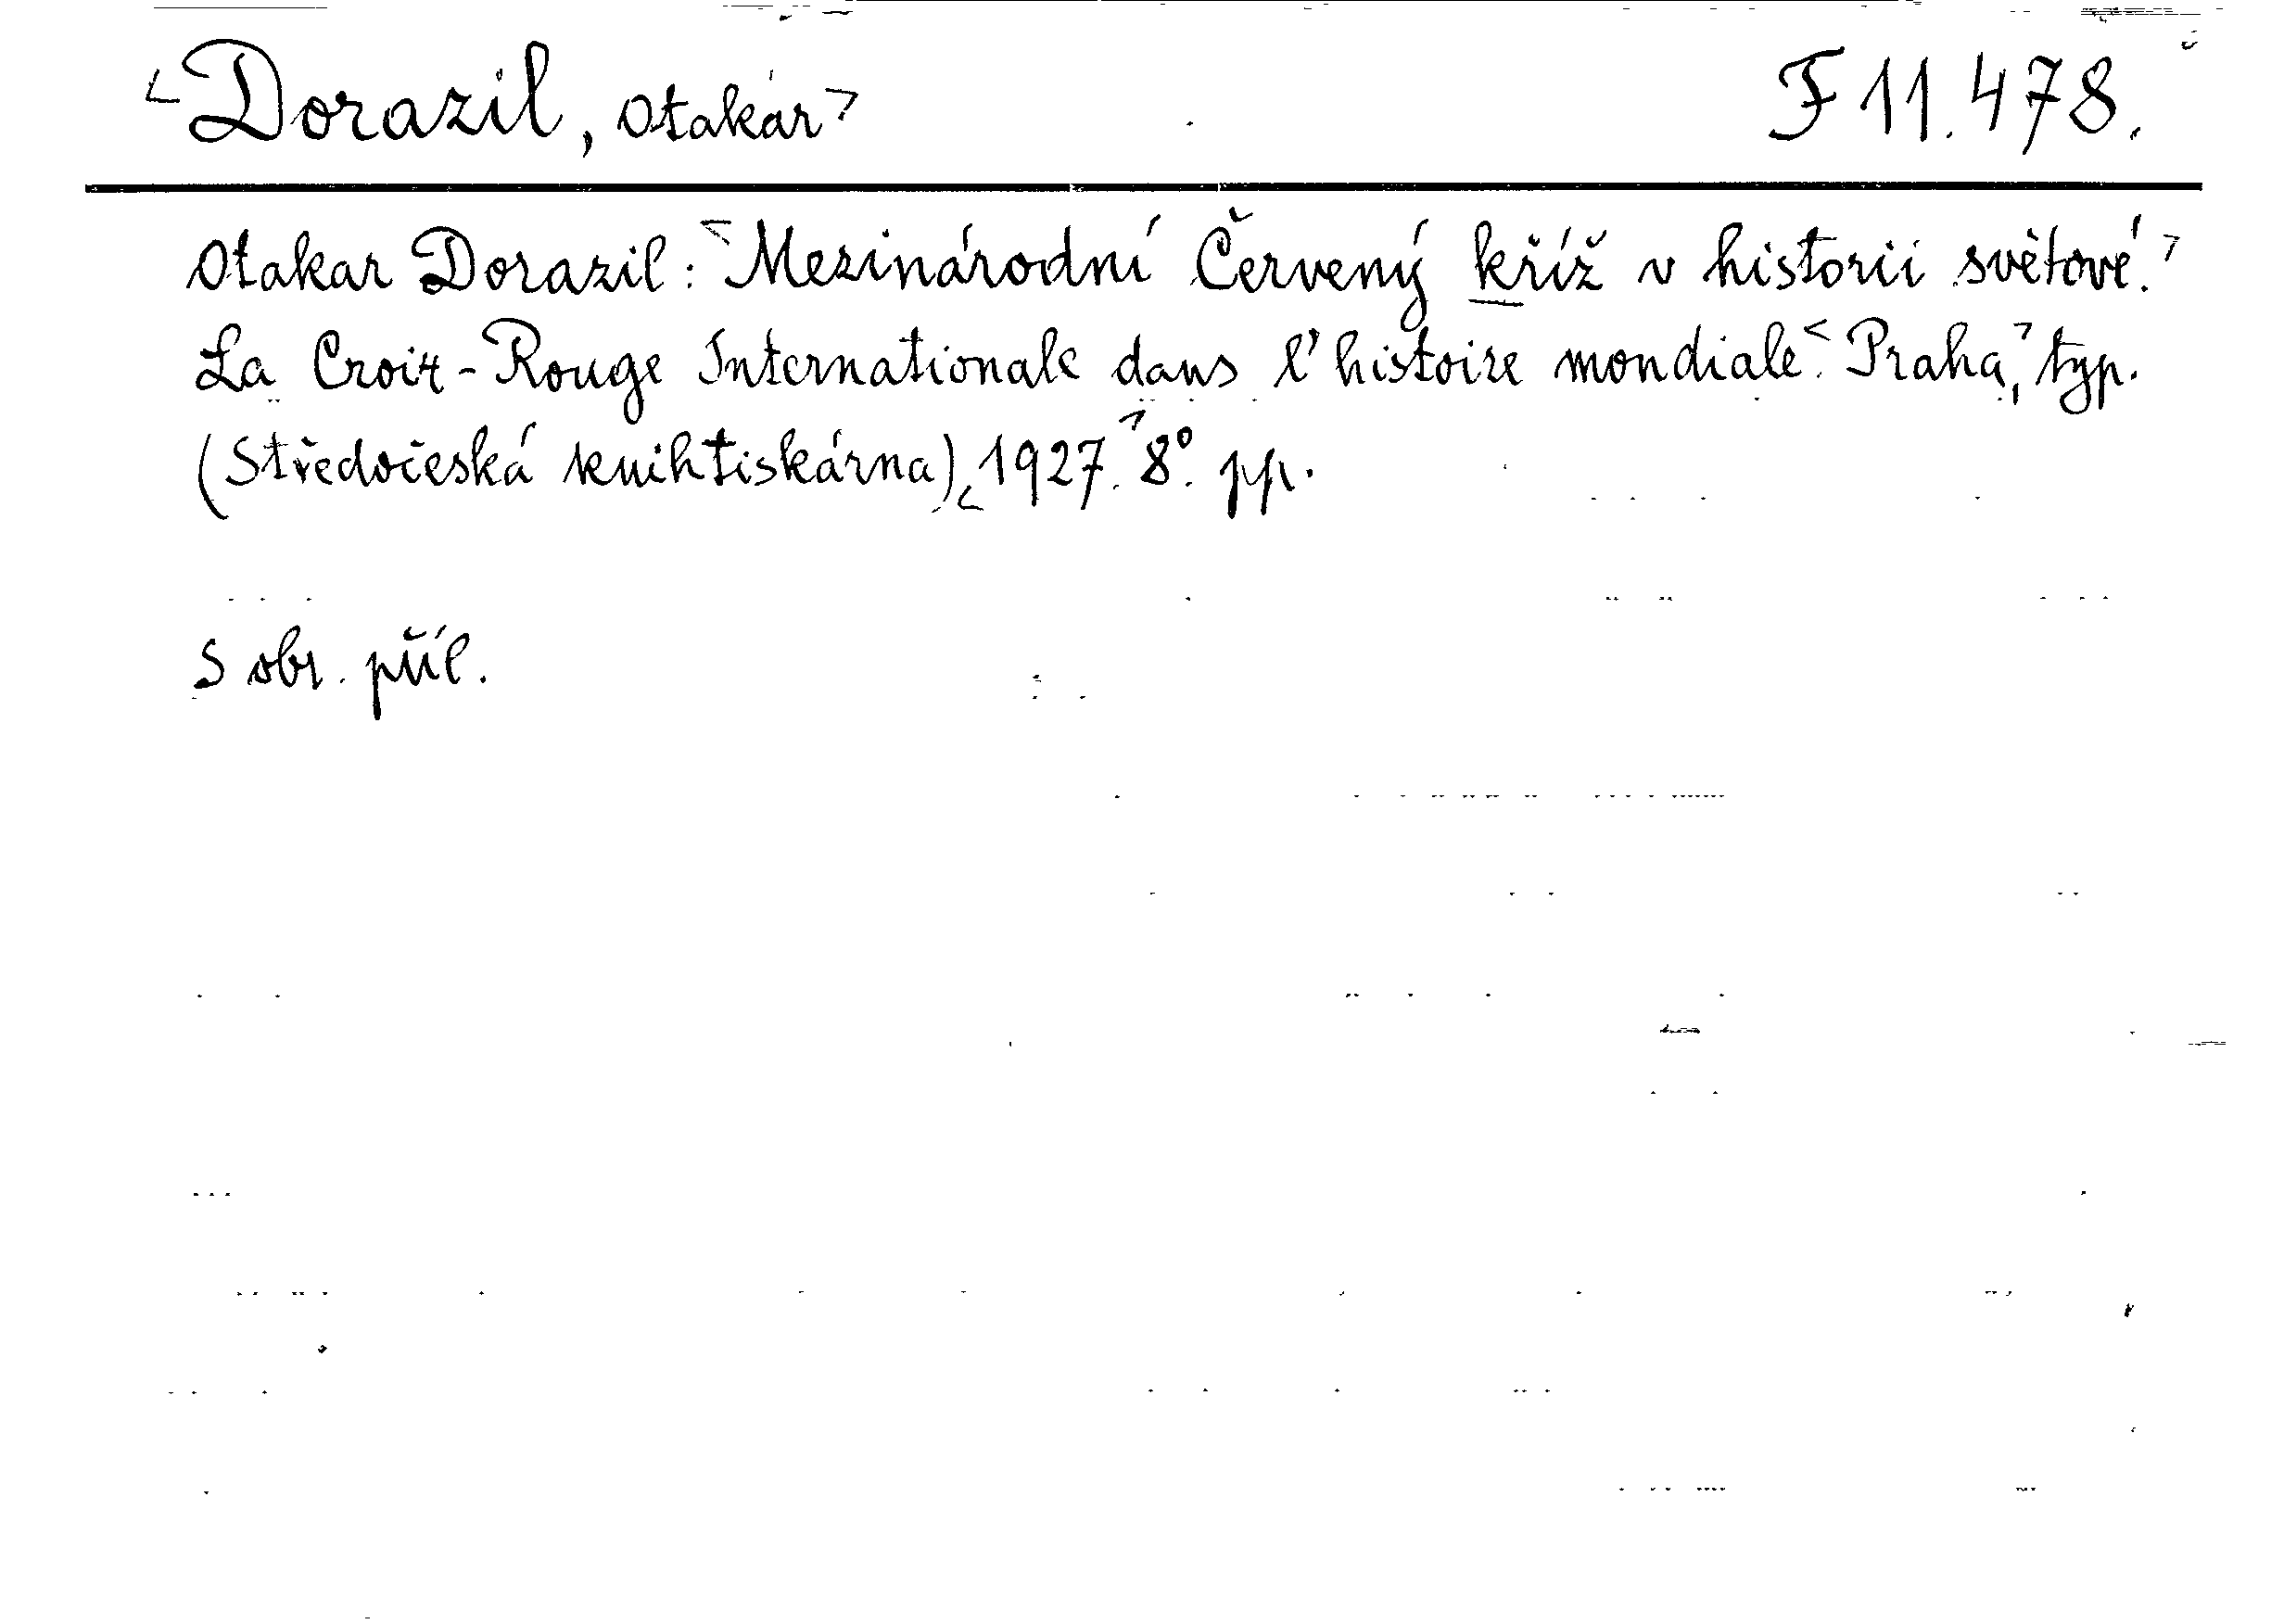 <Dorazil, Otakar>
F 11.478.
Otakar Dorazil: <Mezinárodní Červený kříž v historii světové.>
La Croix-Rouge Internationale dans l'histoire mondiale. <Praha,> typ.
(Středočeská knihtiskárna), <1927.> 8°. pp.
S obr. příl.